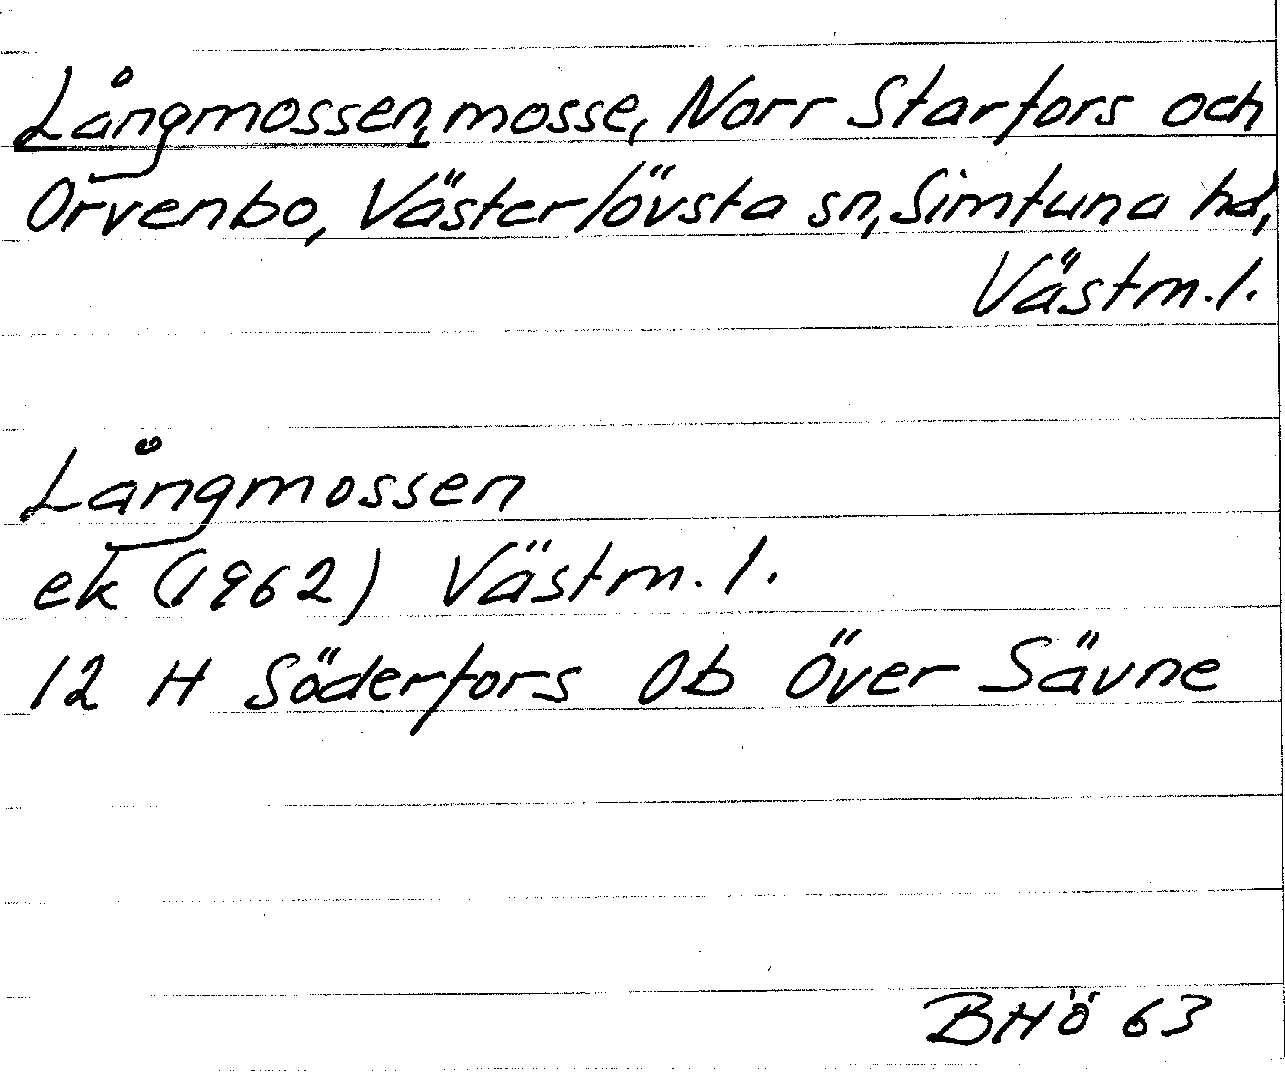 Långmossen, mosse, Norr Starfors och
Orvenbo, Västerlövsta sn, Simtuna hd,
Västm. l.
Långmossen
ek (1962) Västm. l.
12 H Söderfors Ob Över Sävne
BHÖ 63